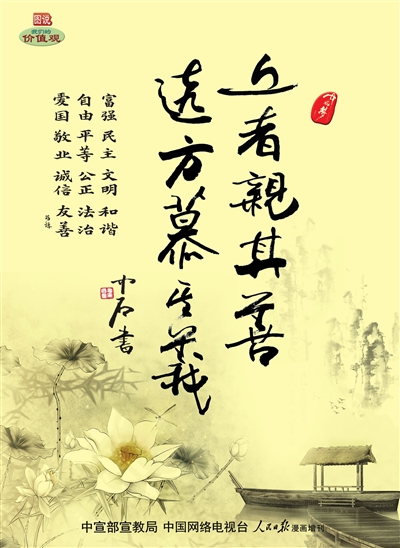 图说
我们的
价值观
近者親其善
遠方慕其義
中石書
富强 民主 文明 和谐
自由 平等 公正 法治
爱国 敬业 诚信 友善
中宣部宣教局 中国网络电视台 人民日报漫画增刊